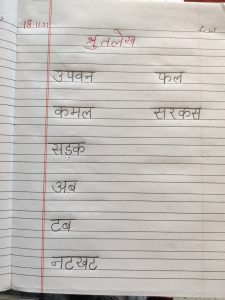 18.11.21 C.W
श्रुतलेख
उपवन फल
कमल सरकस
सड़क
अब
टब
नटखट